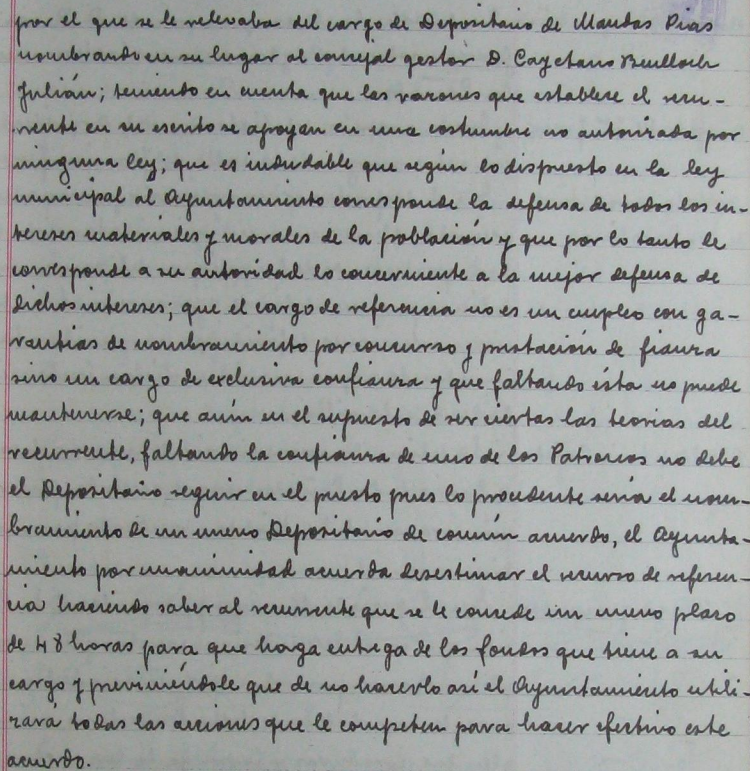 por el que se le relevaba del cargo de Depositario de Mandas Pias
nombrando en su lugar al concejal gestor D. Cayetano Benlloch
Julián; teniendo en cuenta que las razones que establece el recu-
rrente en su escrito se apoyan en una costumbre no autorizada por
ninguna ley; que es indudable que según lo dispuesto en la ley
municipal al Ayuntamiento corresponde la defensa de todos los in-
tereses materiales y morales de la población y que por lo tanto le
corresponde a su autoridad lo concerniente a la mejor defensa de
dichos intereses; que el cargo de referencia no es un empleo con ga-
rantias de nombramiento por concurso y prestación de fianza
sino un cargo de exclusiva confianza y que faltando ésta no puede
mantenerse; que aún en el supuesto de ser ciertas las teorias del
recurrente, faltando la confianza de uno de los Patronos no debe
el Depositario seguir en el puesto pues lo procedente seria el nom-
bramiento de un nuevo Depositario de común acuerdo, el Ayunta-
miento por unanimidad acuerda desestimar el recurso de referen-
cia haciendo saber al recurrente que se le concede un nuevo plazo
de 48 horas para que haga entrega de los fondos que tiene a su
cargo y previniéndole que de no hacerlo así el Ayuntamiento utili-
zará todas las acciones que le competen para hacer efectivo este
acuerdo.